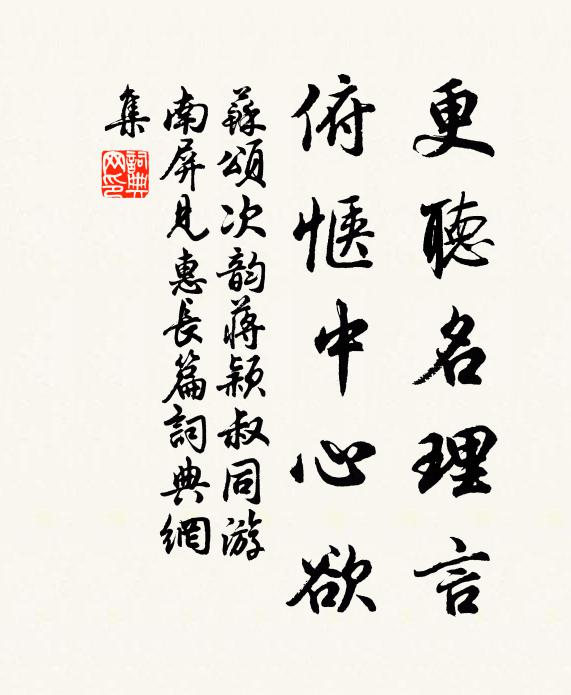 更聽名理言
俯惬中心欲
蘇頌次韵蔣穎叔同游
南屏見惠長篇詞典網
集
詞典網印